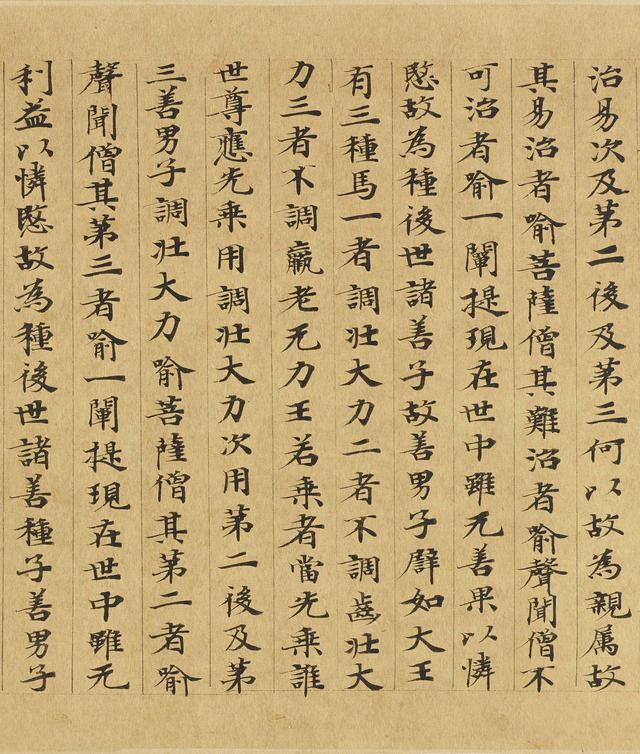 治易次及第二後及第三何以故為親属故
其易治者喻菩薩僧其難治者喻聲聞僧不
可治者喻一闡提現在世中雖无善果以憐
愍故為種後世諸善子故善男子辟如大王
有三種馬一者調壯大力二者不調齒壯大
力三者不調羸老无力王若乘者當先乘誰
世尊應先乘用調壯大力次用第二後及第
三善男子調壯大力喻菩薩僧其第二者喻
聲聞僧其第三者喻一闡提現在世中雖无
利益以憐愍故為種後世諸善種子善男子